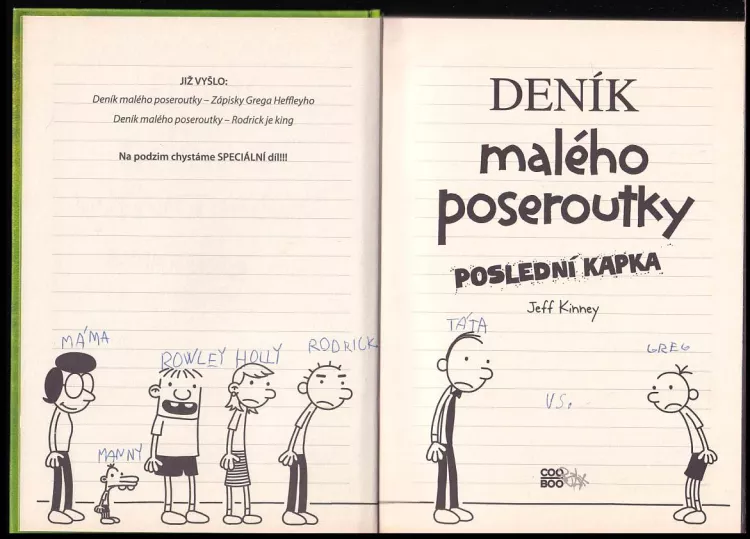 JIŽ VYŠLO:
Deník malého poseroutky – Zápisky Grega Heffleyho
Deník malého poseroutky – Rodrick je king
Na podzim chystáme SPECIÁLNÍ díl!!!
MÁMA
ROWLEY
HOLLY
RODRICK
MANNY
DENÍK
malého
poseroutky
POSLEDNÍ KAPKA
Jeff Kinney
TÁTA
GREG
VS.
COO
BOO